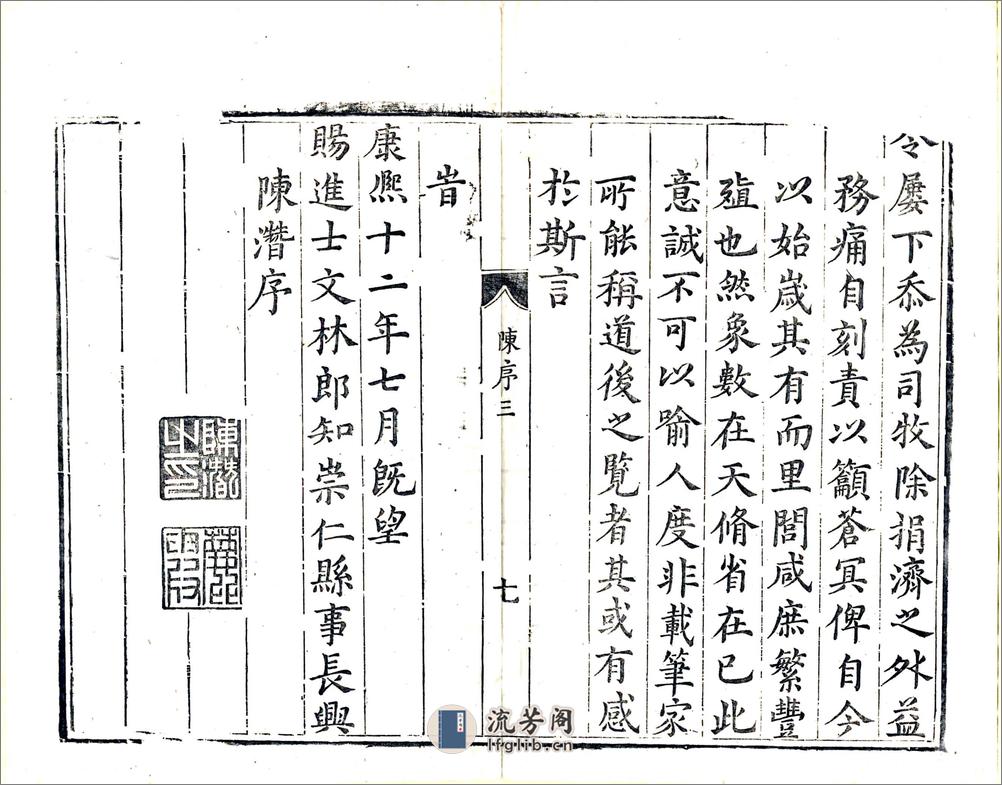 令屢下忝為司牧除捐濟之外益
務痛自刻責以籲蒼冥俾自今
以始歲其有而里閭咸庶繁豐
殖也然象數在天脩省在已此
意誠不可以喻人度非載筆家
所能稱道後之覽者其或有感
於斯言
陳序三
七
旹
康熙十二年七月旣望
賜進士文林郎知崇仁縣事長興
陳濳序
陳濳之印
流芳阁
lfglib.cn